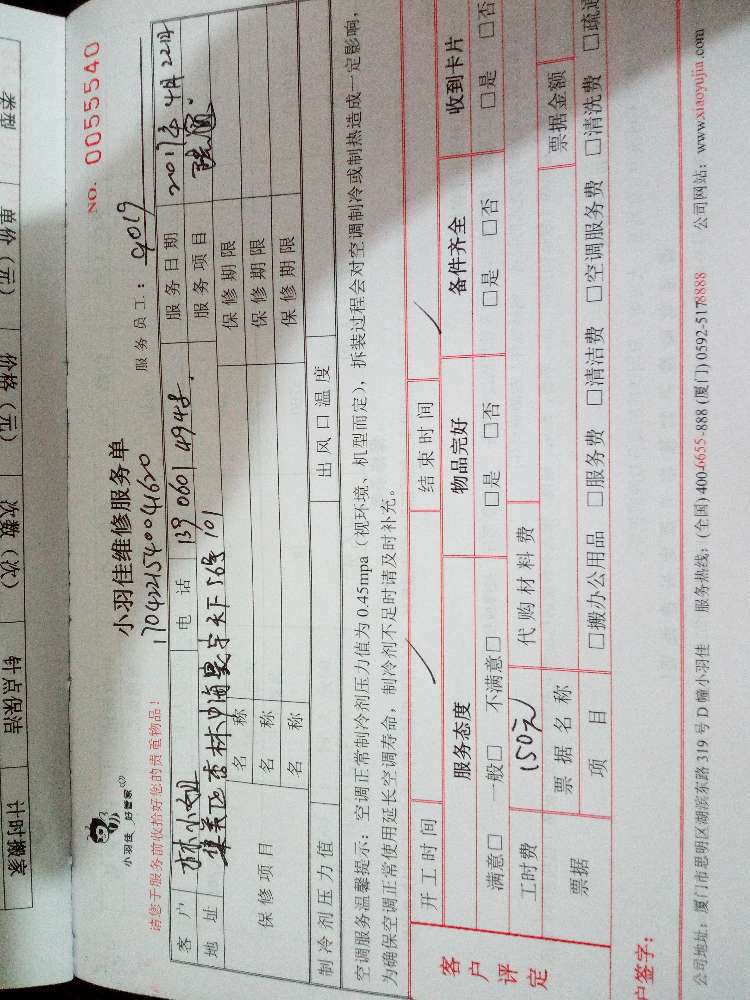 类型
单价（元）
价格（元）
次数（次）
钟点保洁
计时搬家
NO. 0055540
小羽佳 好管家
小羽佳维修服务单
1704221540041620
请您于服务前收拾好您的贵重物品！
服务员工：9019
客户 林小姐 电话 139 0601 4948 服务日期 2017年4月22日
地址 集美区杏林中海寰宇天下56号101 服务项目
保修项目
名称 保修期限
名称 保修期限
名称 保修期限
制冷剂压力值 出风口温度
空调服务温馨提示：空调正常制冷剂压力值为0.45mpa（视环境、机型而定），拆装过程会对空调制冷或制热造成一定影响，
为确保空调正常使用延长空调寿命，制冷剂不足时请及时补充。
客户评定
开工时间 结束时间
服务态度 物品完好 备件齐全 收到卡片
满意□ 一般□ 不满意□ □是 □否 □是 □否 □是 □否
工时费 150元 代购材料费
票据 票据名称 票据金额
项目 □搬办公用品 □服务费 □清洁费 □空调服务费 □清洗费 □疏通
户签字：
公司地址：厦门市思明区湖滨东路319号D幢小羽佳 服务热线：(全国)400-6655-888 (厦门)0592-5178888 公司网站：www.xiaoyujia.com